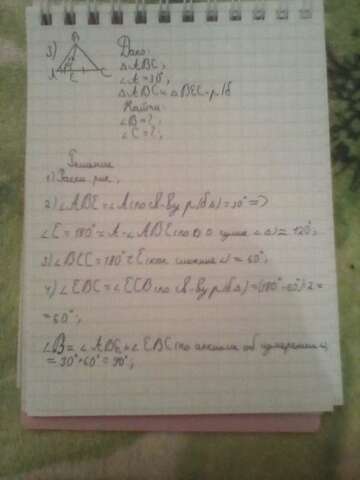 3)
B
A E C
Дано:
△ABC,
∠A=30°,
△ABE и △BEC - р/б
Найти:
∠B=?,
∠C=?,
Решение
1) Расм. рис.,
2) ∠ABE=∠A (по св-ву р/б △)=30° =>
∠E=180°-A-∠ABE (по т. о сумме ∠ △)=120°,
3) ∠BEC=180°-E (как смежные ∠)=60°,
4) ∠EBC=∠ECB (по св-ву р/б △)=(180°-60°):2=
=60°,
∠B=∠ABE+∠EBC (по аксиоме об измерении ∠)
=30°+60°=90°,